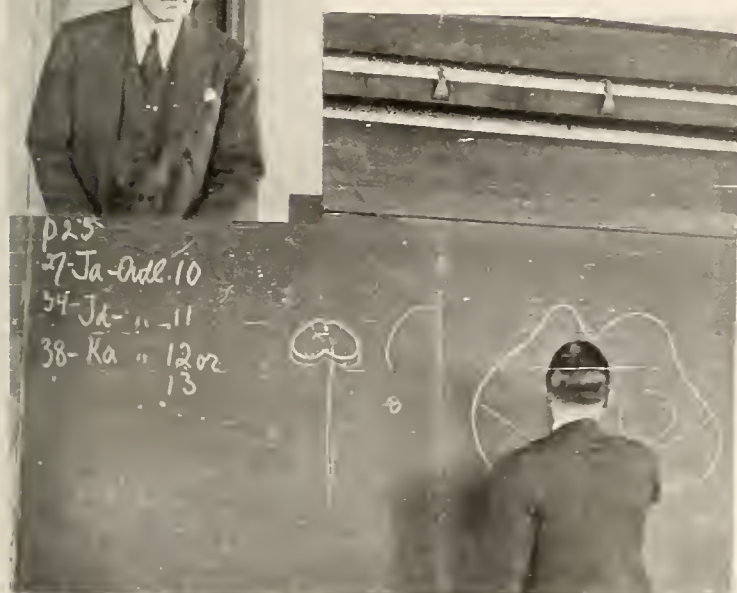 p 25
27-Ja-Outl. 10
34-Ja- " - 11
38-Ka " 12 or
13